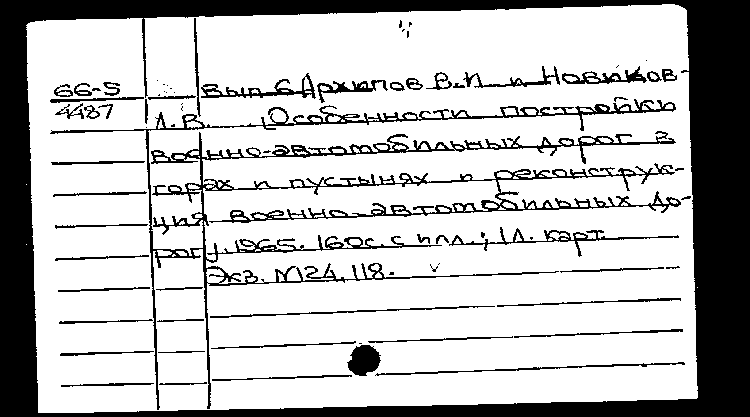 66-5 Вып 6 Архипов В.И и Новиков-
4487 Л.В. [Особенности постройки
военно-автомобильных дорог в
горах и пустынях и реконструк-
ция военно-автомобильных до-
рог]. 1965. 160с. с илл.; 1л. карт.
Экз. №24, 118.